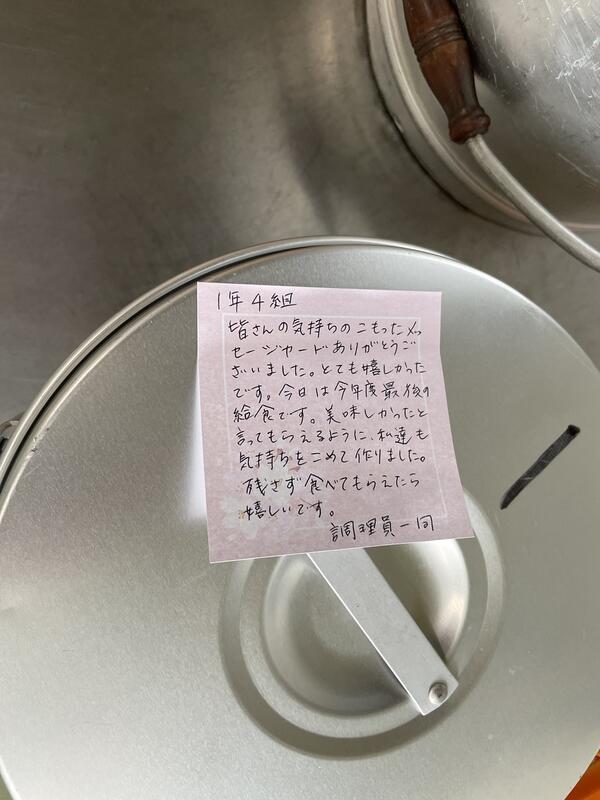 1年4組
皆さんの気持ちのこもったメッ
セージカードありがとうご
ざいました。とても嬉しかった
です。今日は今年度最後の
給食です。美味しかったと
言ってもらえるように、私達も
気持ちをこめて作りました。
残さず食べてもらえたら
嬉しいです。
調理員一同